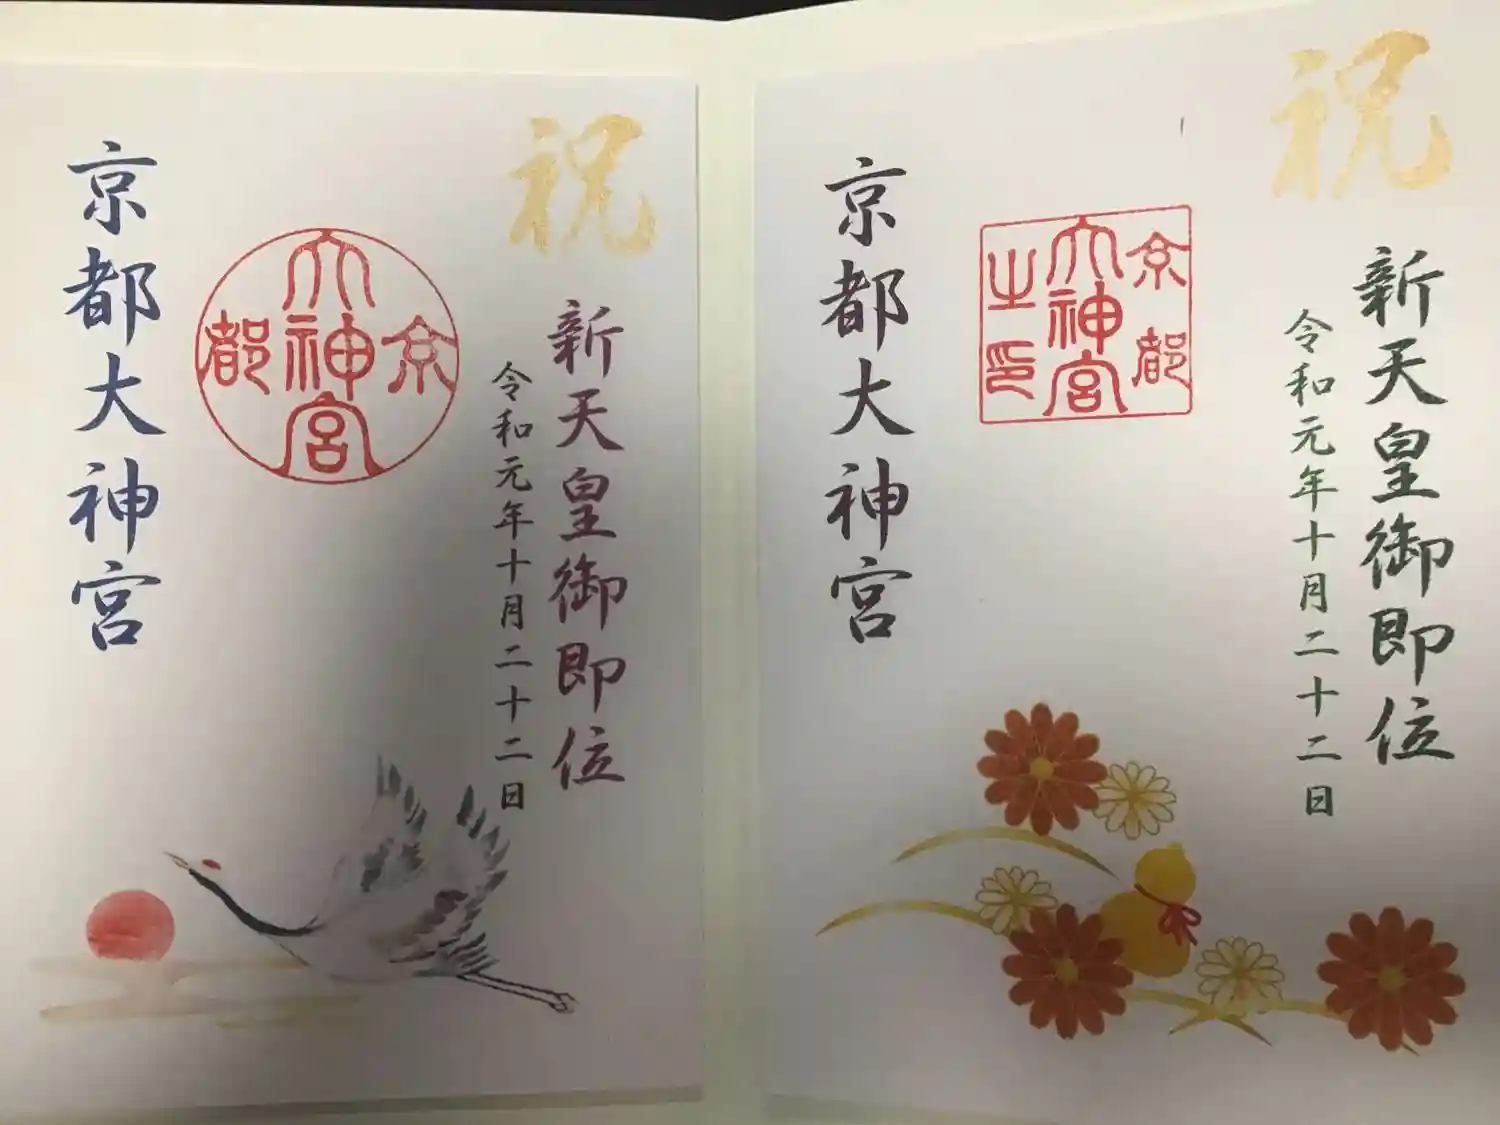 祝
新天皇御即位
令和元年十月二十二日
京都
大神宮
之印
京都大神宮
祝
新天皇御即位
令和元年十月二十二日
大神宮
京都
京都大神宮